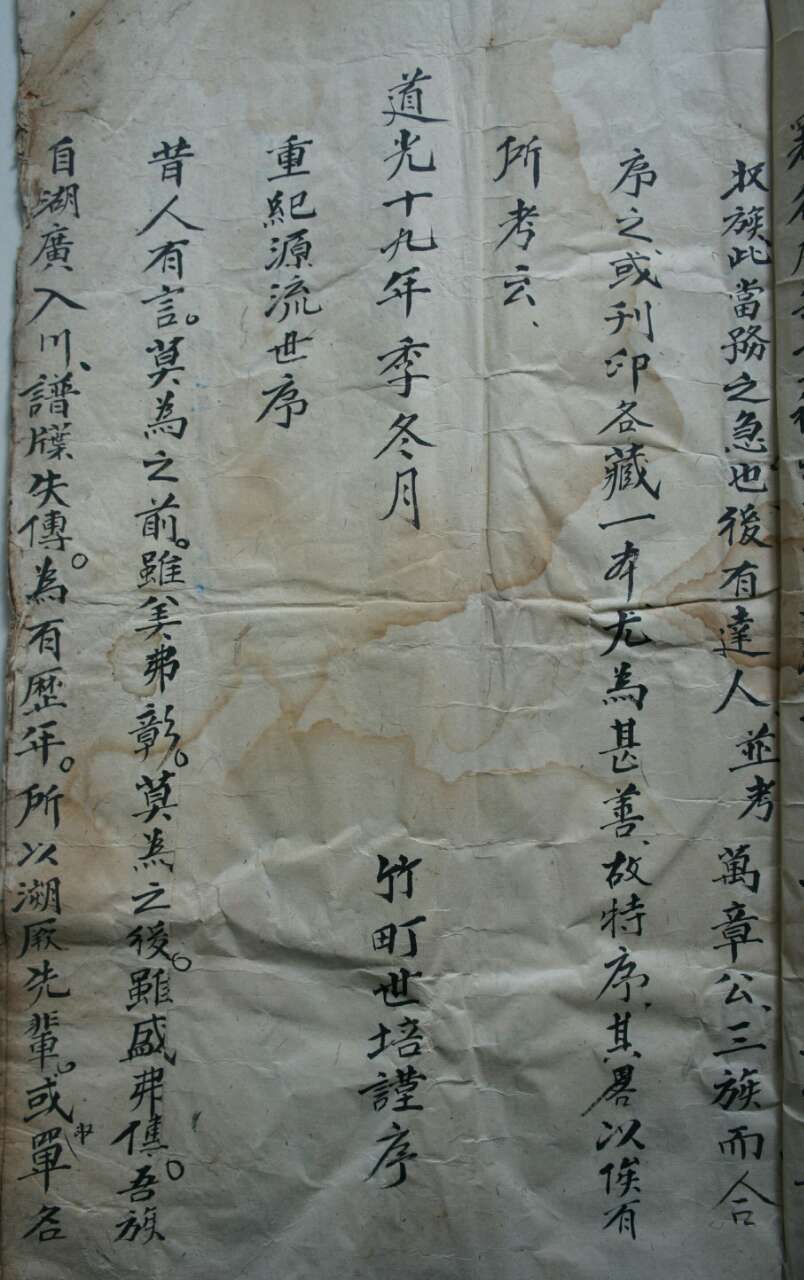 收族此當務之急也後有達人、並考 萬章公、三族而合
序之、或刊印各藏一本、尤為甚善、故特序、其畧以俟有
所考云、
道光十九年季冬月 竹町世培謹序
重紀源流世序
昔人有言。莫為之前。雖美弗彰。莫為之後。雖盛弗傳。吾族
自湖廣入川、譜牒失傳。為有歷年。所以溯厥先輩。或單名